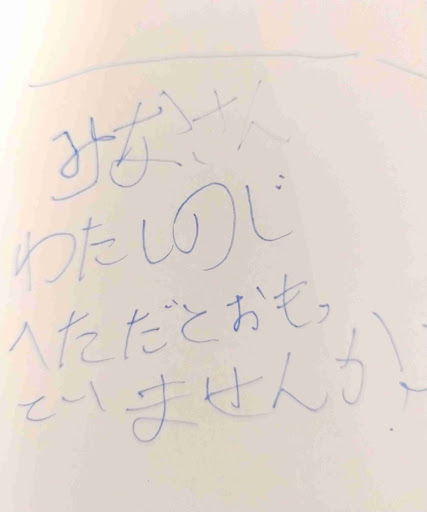 みなさん
わたしのじ
へただとおもっ
ていませんか?